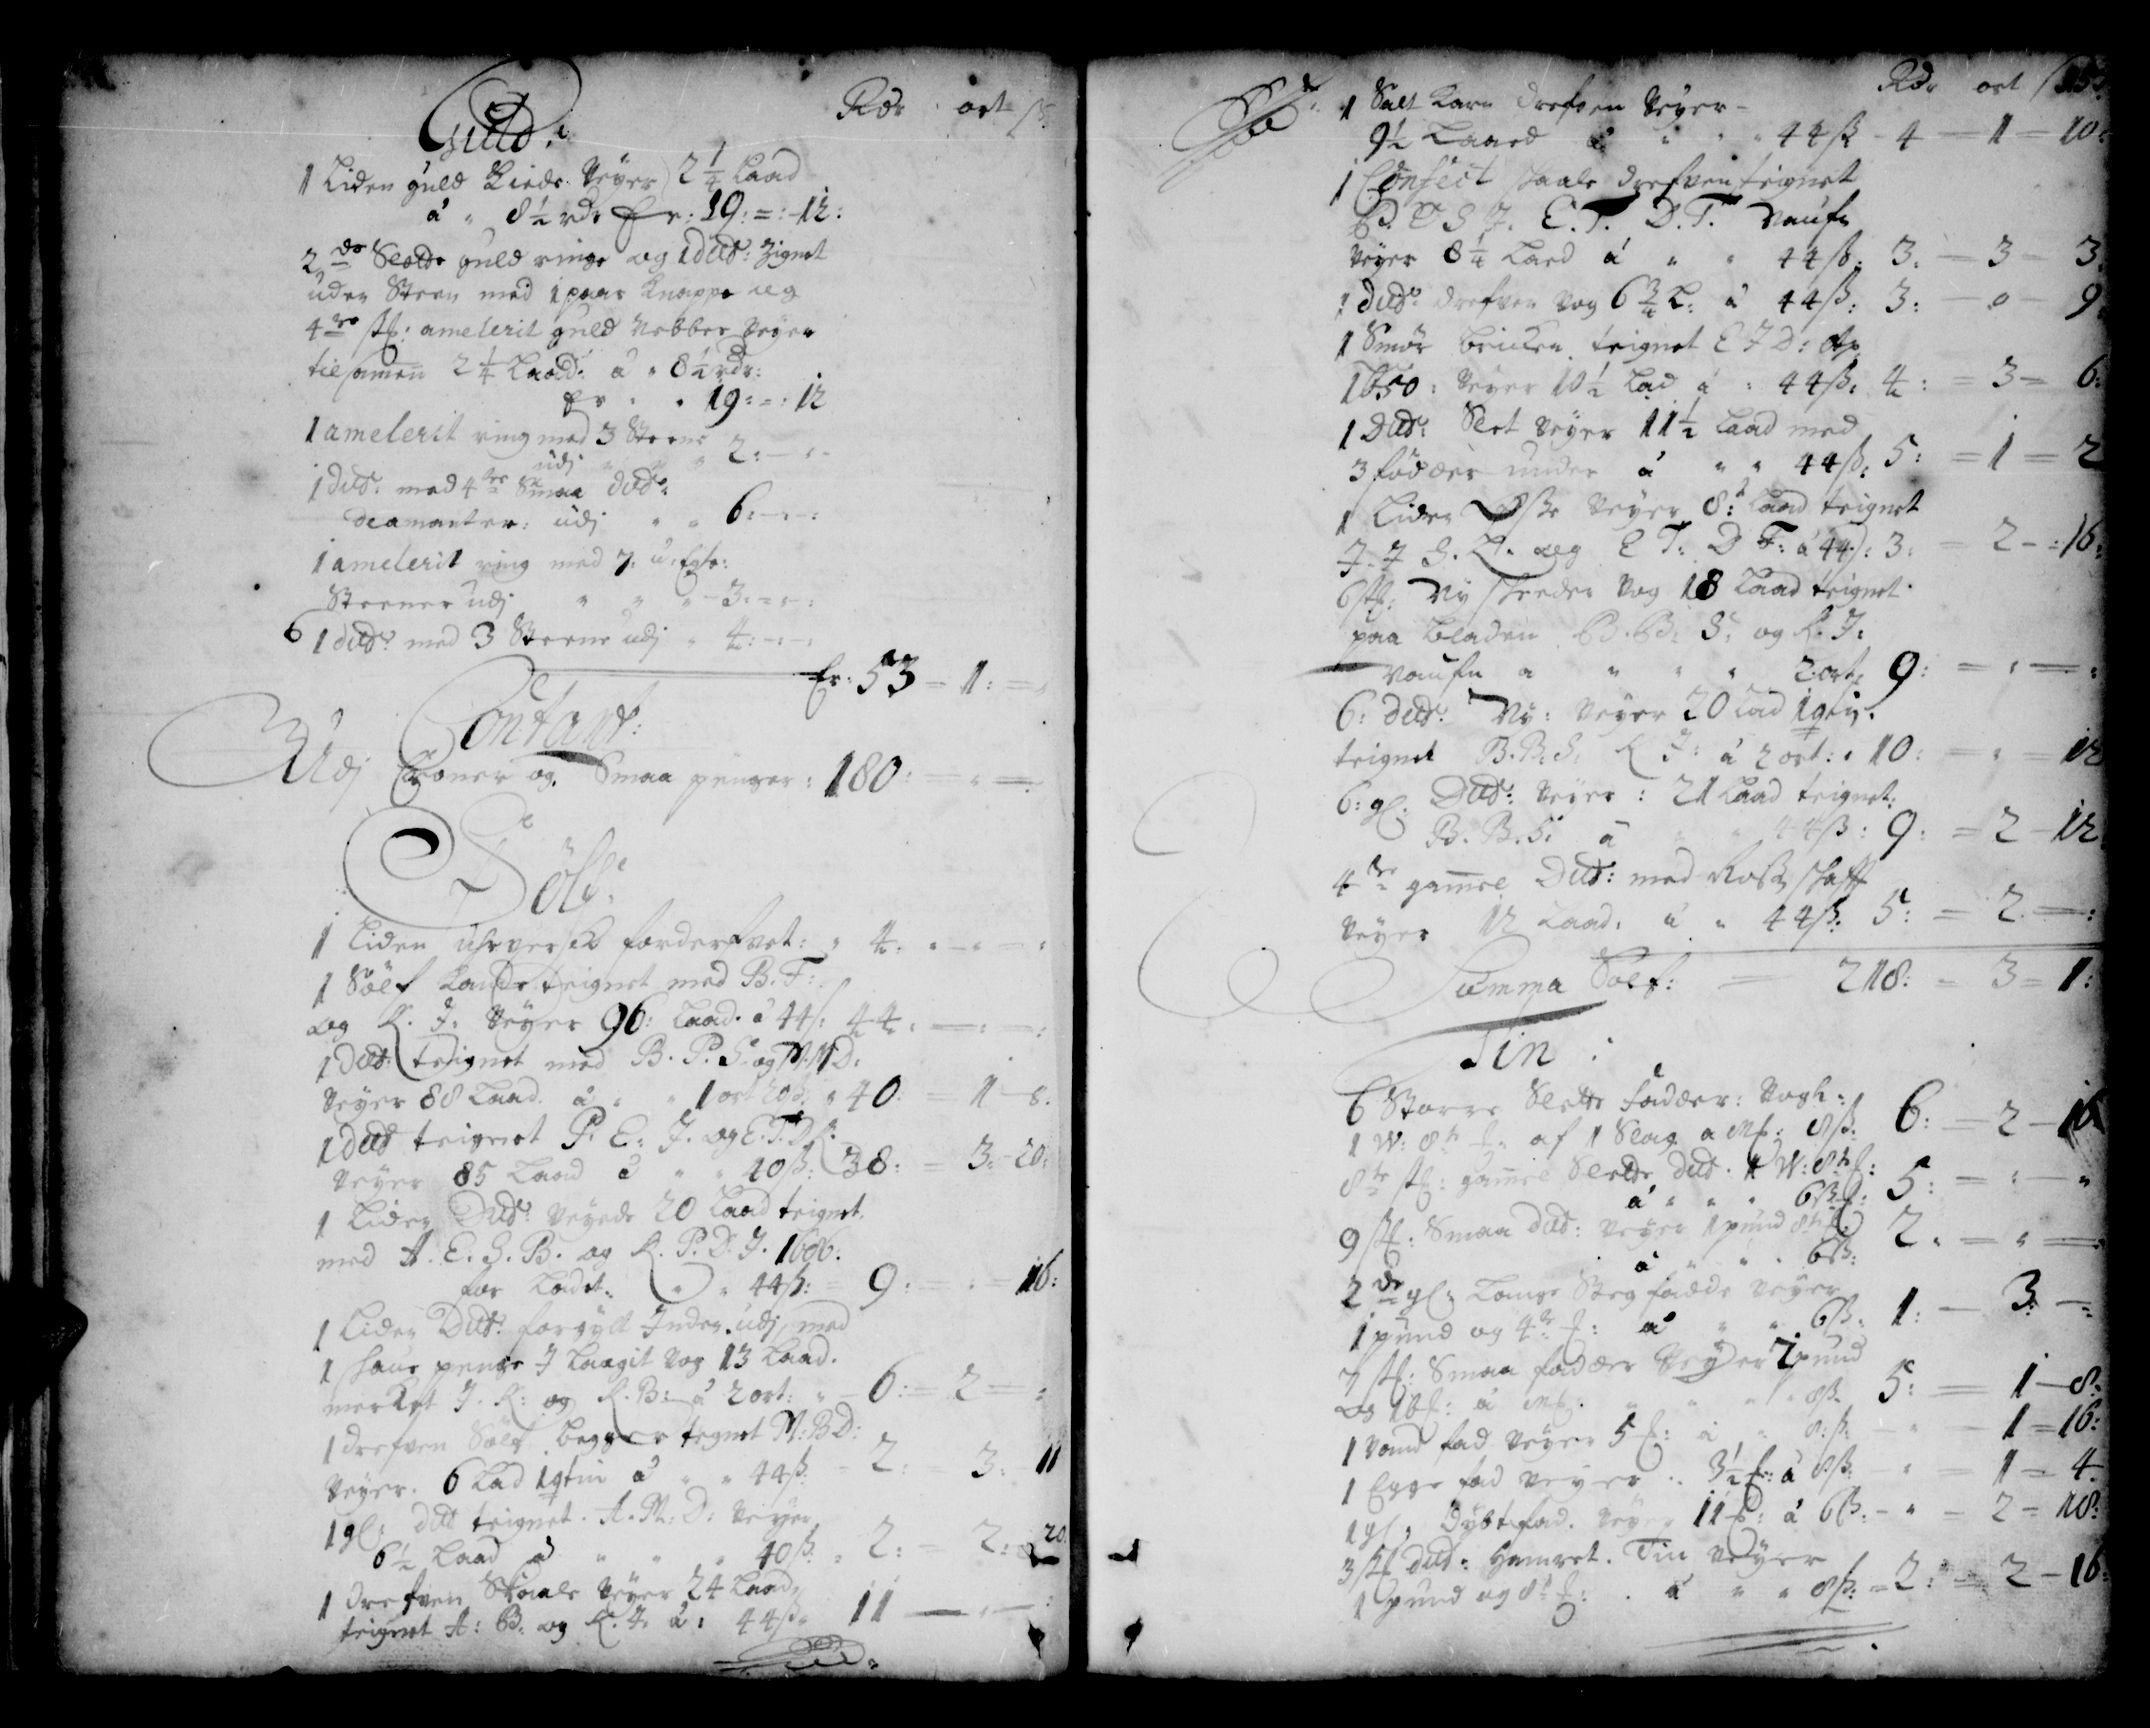 Guld:
Rdr ort ß
1 Liden guld Kiede Veyer 2 1/4 Laad
á " 8 1/2 rdr Er: 19: =: 12:
2de Slette guld ringe og 1 dito: Zignet
uden Steen med 1 paar Knappe og
4re st: amelerit guld Nebber Veyer
tilsamen 2 1/4 Laad: á " 8 1/2 rdr:
Er " " 19: =: 12
1 amelerit ring med 3 Steene
udj " " " 2: - " -
1 dito: med 4re Smaa dito:
deamanter: udj " " 6: - " -
1 amelerit ring med 7.
Steener udj " " " 3: - " -
6 1 dito med 3 Steene udj " 4: - " -
Er: 53 - 1: =
Contant:
Udj Croner og Smaa penger: 180: = " =
Sölf:
1 Liden Uhrverck forderfvet: " 4: " - " - "
1 Sölf Kande teignet med B. F:
og K. J: Veyer 96: Laad. á 44ß: 44: - : - :
1 Dito: teignet med B. P. S. og M. M D:
Veyer 88 Laad. á " " 1 ort 20ß: " 40: = 1 - 8.
1 Dito teignet P. E: J. og E. T. D K:
Veyer 85 Laad á " " 40ß: 38: = 3: - 20:
1 Liden Dito: Veyede 20 Laad teignet.
med A. E. S. B. og K. P. D. J. 1686:
for Ladet: " " 44ß: = 9: - : = 16:
1 Liden Dito: forgylt Inden udj med
1 penge J Laagit Vog 13 Laad.
merket J. K: og K. B: á 2 ort: " - 6: = 2 = "
1 drefven Sölf begger tegnet M: B D:
Veyer. 6 Lad 1 qtin á " " 44ß: = 2: = 3: 11
1 gl: dito teignet. A. M: D: Veyer
6 1/2 Laad á " " " 40ß: " 2: = 2: = 20
1 Drefven Skaale Veyer 24 Laad
teignet A: B: og K. J: á: 44ß: 11 - " - :
Rdr ort ß
1 Salt Karn drefven Veyer -
9 1/2 Laaed á " " " 44ß - 4 = 1 = 10:
1 Confect Skaale drefven teignet
E. T. D. T. Vaufn
Veyer 8 1/4 Laed á " " 44ß: 3: = 3 = 3:
1 dito: drefven Vog 6 3/4 L: á 44ß: 3: - 0 - 9
1 Smör bricken teignet E J D: Ao
1650: Veyer 10 1/2 Lad á " 44ß: 4: = 3 = 6:
1 Dito: Slet Veyer 11 1/2 Laad med
3 födder under á " " 44ß: 5: = 1 = 2
1 Liden Öße Veyer 8: Laad teignet
J. J S. og E T: D F: á 44ß: 3: = 2 - : 16:
6 st: Ny Skeeder Vog 18 Laad teignet
paa Bladen B. B: S: og K. J:
Vaufn á " " " " 2 ort 9: = " = "
6: dito: Ny: Veyer 20 Lad 1 qtin.
teignet B. B: S: K J: á 2 ort: " 10: = " = 12
6: gl. Dito: Veyer: 21 Laad teignet.
B. B. S: á " " 44ß: 9: = 2 - 12
4re gamle Dito: med Roß Skafft
Veyer 12 Laad. á " 44ß: 5: = 2 = :
Summa Sölf: = 218: = 3 = 1:
Tin:
6 Store Slette Fadder: Vogh:
1 W: 8te £: af 1 Slag a M£: 8ß: 6: = 2 - 16
8te st: gamle Slette dito. 1 W: 8te £:
á " " " 6ß: 5: = " - "
9 st: Smaa dito: Veyer 1 pund 8te £:
á " " 6ß: 2. = " =
2de gl: Lange Steg fadde Veyer
1 pund og 4te £: á " " 6ß: 1: - 3: - :
7 st: Smaa fadder Veyer 1 pund
og 16£: á M£. " " " 8ß. 5: = 1 - 8:
1 Vand fad Veyer 5 £: á " 8:ß: - " - 1 = 16:
1 Egge fad Veyer .. 3 1/2 £: á 8ß: - " = 1 = 4
1 gl: Dybt fad. Veyer 11 £: á 6ß: - " = 2 = 18:
3 st dito: Hamret. Tin Veyer
1 pund og 8te £: . á " " 8ß: = 2: = 2 - 16: